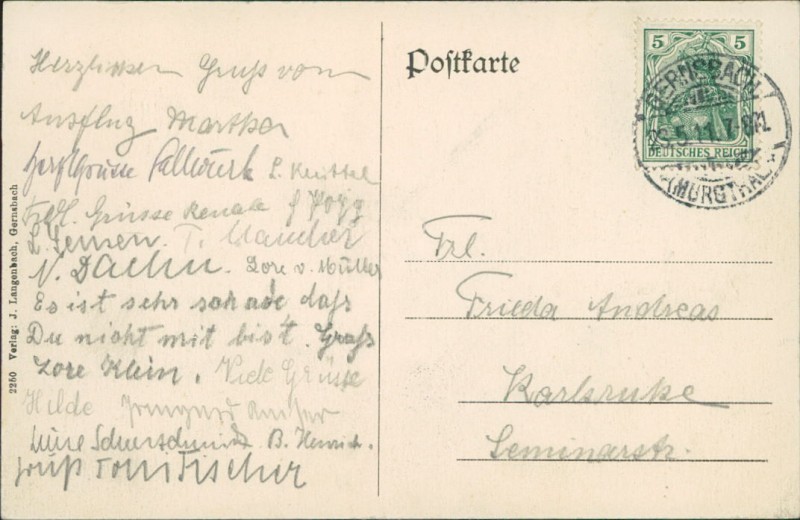 Herzlichen Gruß vom
Ausflug Martha
Herzl Grüsse L. Knittel
Frdl. Grüsse Renate
L. Jensen. T.
N. Daehn. Lore v. Müller
Es ist sehr schade daß
Du nicht mit bist. Gruß
Lore Klein. Viele Grüsse
Hilde Irmgard
B. Henrich.
Gruß Toni Fischer
2250 Verlag: J. Langenbach, Gernsbach
Postkarte
5 5
DEUTSCHES REICH
GERNSBACH
26.5.11.7-8N.
(MURGTHAL)
Frl.
Frieda Andreas
Karlsruhe
Seminarstr.